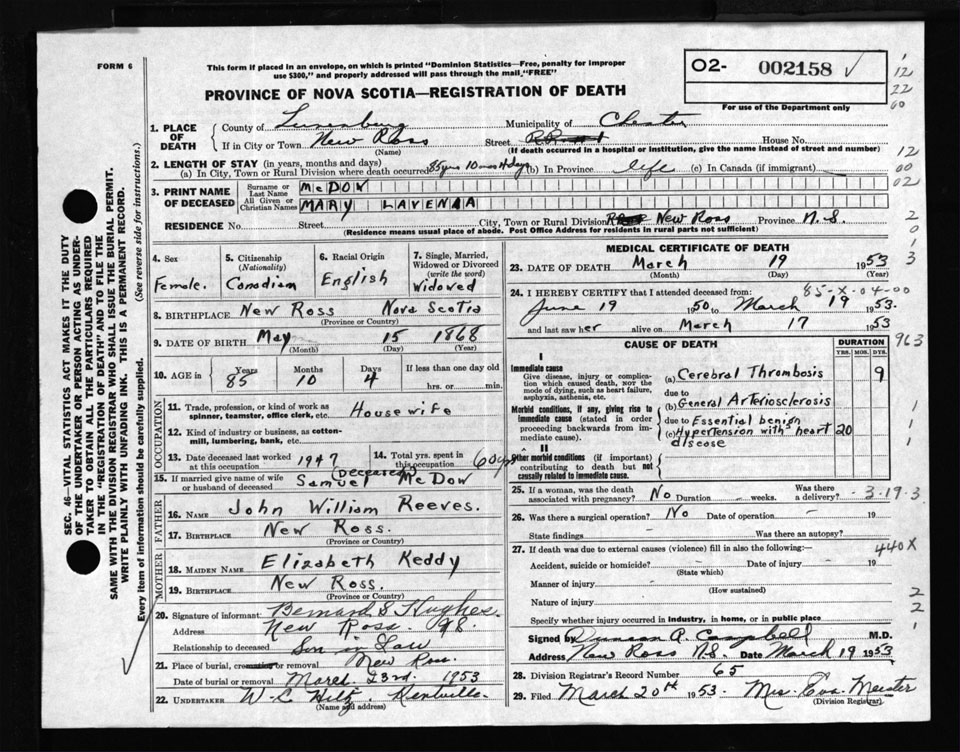 FORM 6
This form if placed in an envelope, on which is printed "Dominion Statistics—Free, penalty for improper
use $300," and properly addressed will pass through the mail,"FREE"
PROVINCE OF NOVA SCOTIA—REGISTRATION OF DEATH
O2- 002158 ✓
For use of the Department only
1. PLACE OF DEATH { County of Lunenburg Municipality of Chester
If in City or Town New Ross Street House No.
(Name) (If death occurred in a hospital or institution, give the name instead of street and number)
2. LENGTH OF STAY (in years, months and days)
(a) In City, Town or Rural Division where death occurred 85yrs 10mos 4days (b) In Province life (c) In Canada (if immigrant)
3. PRINT NAME OF DECEASED { Surname or Last Name McDOW
All Given or Christian Names MARY LAVENIA
RESIDENCE No. Street City, Town or Rural Division New Ross Province N.S.
(Residence means usual place of abode. Post Office Address for residents in rural parts not sufficient)
4. Sex Female.
5. Citizenship (Nationality) Canadian
6. Racial Origin English
7. Single, Married, Widowed or Divorced (write the word) Widowed
8. BIRTHPLACE New Ross Nova Scotia
(Province or Country)
9. DATE OF BIRTH May 15 1868
(Month) (Day) (Year)
10. AGE in { Years 85 Months 10 Days 4 If less than one day old hrs. or min.
OCCUPATION
11. Trade, profession, or kind of work as spinner, teamster, office clerk, etc. Housewife
12. Kind of industry or business, as cotton-mill, lumbering, bank, etc.
13. Date deceased last worked at this occupation 1947
14. Total yrs. spent in this occupation 60yrs
15. If married give name of wife or husband of deceased (Deceased) Samuel McDow
FATHER
16. NAME John William Reeves.
17. BIRTHPLACE New Ross.
(Province or Country)
MOTHER
18. MAIDEN NAME Elizabeth Keddy
19. BIRTHPLACE New Ross.
(Province or Country)
20. Signature of informant Bernard S Hughes
Address New Ross. N.S.
Relationship to deceased Son in Law
21. Place of burial, cremation or removal New Ross.
Date of burial or removal March 23rd. 1953
22. UNDERTAKER W. C. Hiltz Kentville.
(Name and address)
MEDICAL CERTIFICATE OF DEATH
23. DATE OF DEATH March 19 1953
(Month) (Day) (Year)
85-X-04-00
24. I HEREBY CERTIFY that I attended deceased from:
June 19 1950 to March 19 1953.
and last saw her alive on March 17 1953
CAUSE OF DEATH
DURATION
YRS. MOS. DYS.
I
Immediate cause
Give disease, injury or complication which caused death, NOT the mode of dying, such as heart failure, asphyxia, asthenia, etc.
(a) Cerebral Thrombosis 9
due to
Morbid conditions, if any, giving rise to immediate cause (stated in order proceeding backwards from immediate cause).
(b) General Arteriosclerosis
due to Essential benign
(c) Hypertension with heart disease 20
II
Other morbid conditions (if important) contributing to death but not causally related to immediate cause.
25. If a woman, was the death associated with pregnancy? No Duration - weeks. Was there a delivery? -3-19-3
26. Was there a surgical operation? No Date of operation - 19
State findings Was there an autopsy?
27. If death was due to external causes (violence) fill in also the following:— 440X
Accident, suicide or homicide? Date of injury 19
(State which)
Manner of injury
(How sustained)
Nature of injury
Specify whether injury occurred in industry, in home, or in public place
Signed by Duncan R. Campbell M.D.
Address New Ross N.S. Date March 19 1953
28. Division Registrar's Record Number 65
29. Filed March 20th 1953. Mrs. Eva Meister
(Division Registrar)
1
12
22
60
12
00
02
2
0
1
3
963
1
1
1
2
2
1
SEC. 46—VITAL STATISTICS ACT MAKES IT THE DUTY
OF THE UNDERTAKER OR PERSON ACTING AS UNDER-
TAKER TO OBTAIN ALL THE PARTICULARS REQUIRED
IN THE "REGISTRATION OF DEATH" AND TO FILE THE
SAME WITH THE DIVISION REGISTRAR WHO SHALL ISSUE THE BURIAL PERMIT.
WRITE PLAINLY WITH UNFADING INK. THIS IS A PERMANENT RECORD.
Every item of information should be carefully supplied. (See reverse side for instructions.)